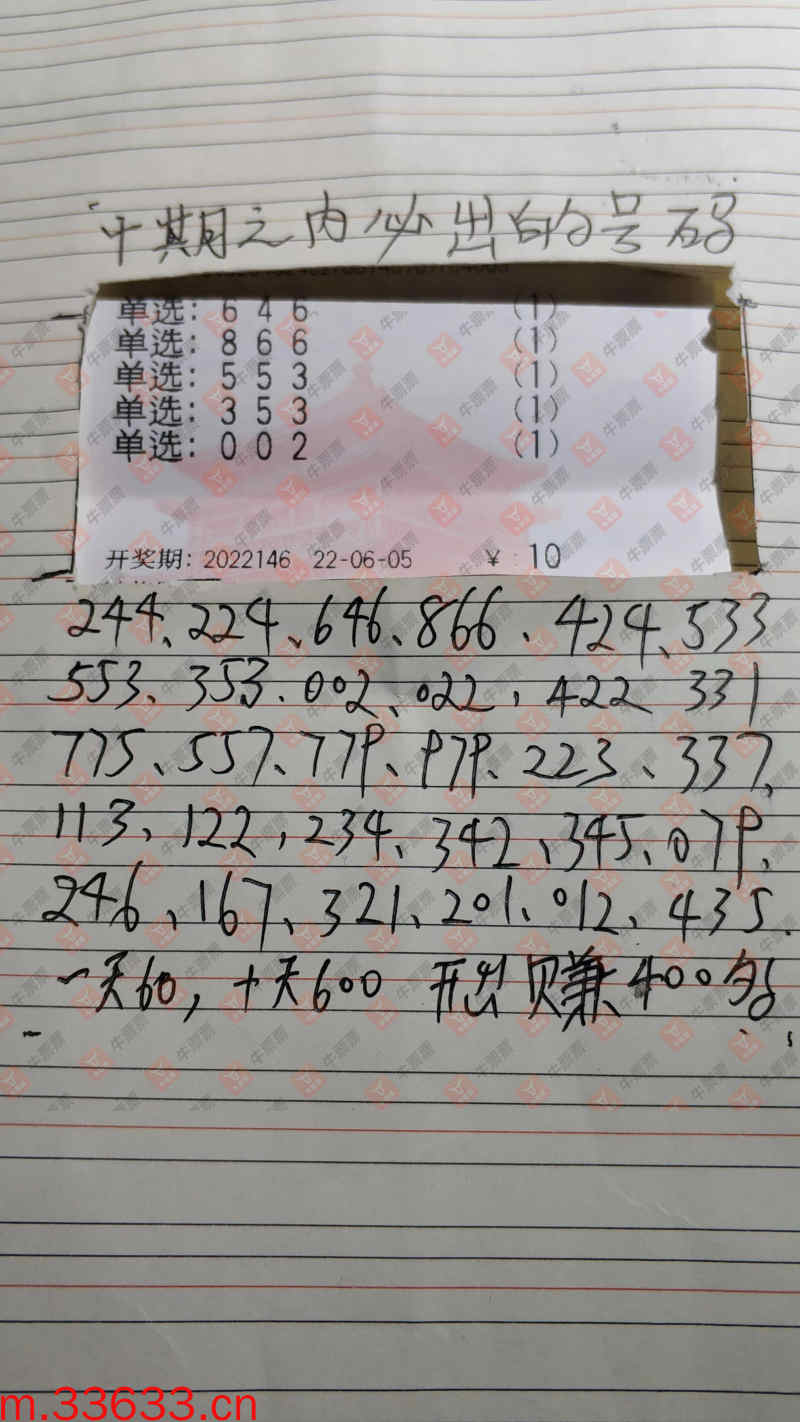 十期之内必出的号码
单选: 6 4 6 (1)
单选: 8 6 6 (1)
单选: 5 5 3 (1)
单选: 3 5 3 (1)
单选: 0 0 2 (1)
开奖期: 2022146 22-06-05 ¥: 10
244、224、646、866、424、533
553、353、002、022, 422 331
775、557、779、979、223、337、
113、122, 234、342、345、079、
246、167、321、201、012、435.
一天60, 十天600 开出赚400多
牛票票
m.33633.cn